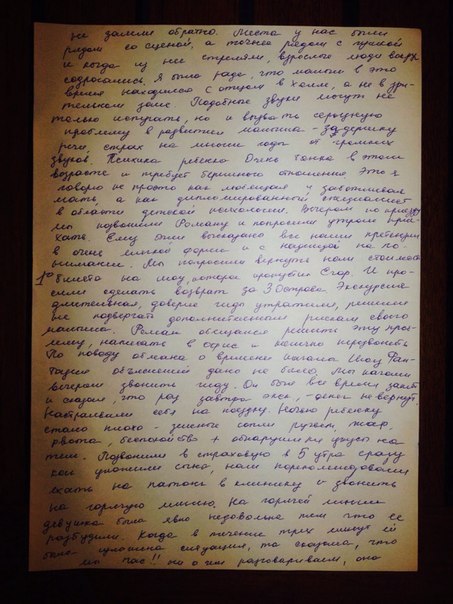 не залили обратно. Места у нас были
рядом со сценой, а точнее рядом с пушкой
и когда из нее стреляли, взрослые люди вокруг
содрогались. Я была рада, что малыш в это
время находился с отцом в холле, а не в зри-
тельном зале. Подобные звуки могут не
только испугать, но и вызвать серьезную
проблему в развитии малыша - задержку
речи, страх на многие годы от громких
звуков. Психика ребенка очень тонка в этом
возрасте и требует бережного отношения. Это я
говорю не просто как любящая и заботливая
мать, а как дипломированный специалист
в области детской психологии. Вечером по приезду
мы позвонили Роману и попросили утром прие-
хать. Ему были высказаны все наши претензии
в очень мягкой форме и с надеждой на по-
нимание. Мы попросили вернуть нам стоимость
1го билета на шоу, которое пропустил Егор. И про-
сили сделать возврат за 3 Острова. Экскурсия
длительная, доверие гиды утратили, решили
не подвергать дополнительным рискам своего
малыша. Роман обещался решить эту проб-
лему, написать в офис и конечно перезвонить
По поводу обмана о времени начала Шоу Фан-
тазия объяснений дано не было. Мы начали
вечером звонить гиду. Он был все время занят
и сказал, что раз завтра экск., - денег не вернут
Настраивали себя на поездку. Ночью ребенку
стало плохо - зеленые сопли ручьем, жар,
рвота, беспокойство + обнаружили укусы на
теле. Позвонили в страховую в 5 утра сразу
как уложили сына, нам порекомендовали
ехать на патонг в клинику и звонить
на горячую линию. На горячей линии
девушка была явно недовольна тем что ее
разбудили. Когда в течение трех минут ей
была изложена ситуация, та сказала, что
мы час!! ни о чем разговариваем, она